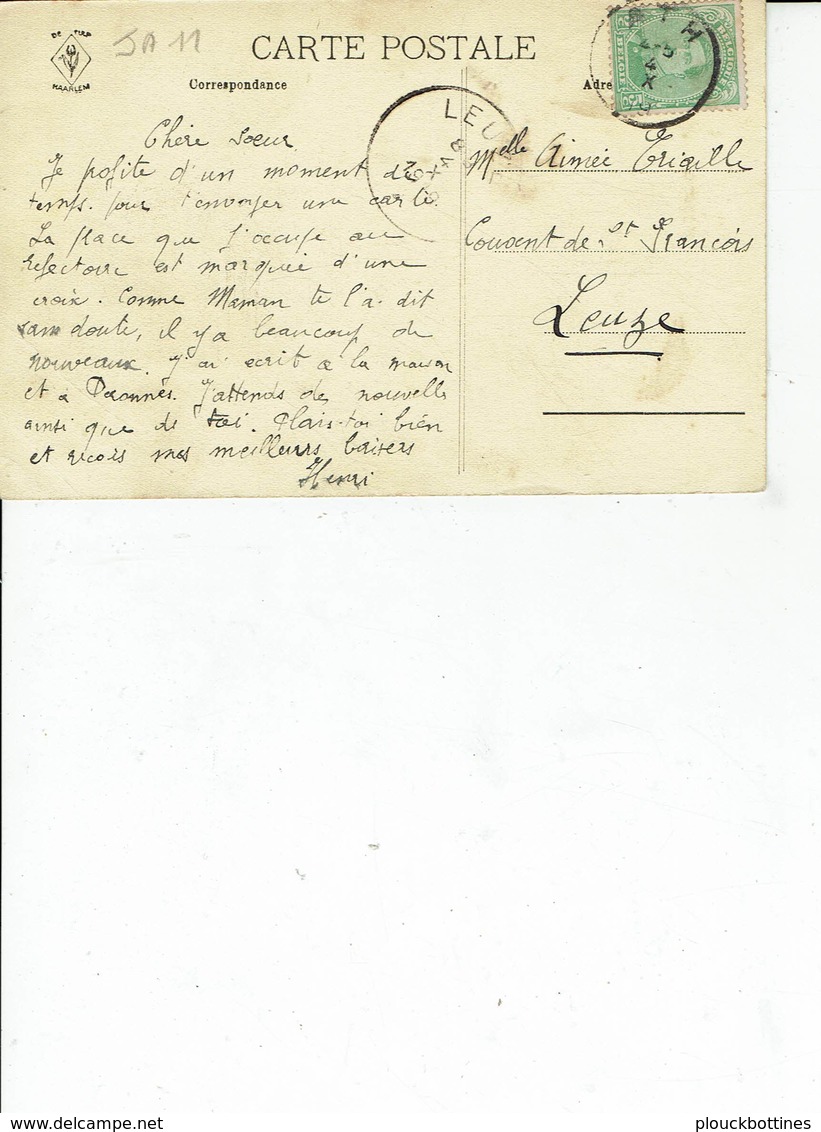 DE TULP
HAARLEM
JA 11
CARTE POSTALE
Correspondance
Adre
ATH
BELGIE
BELGIQUE
LEUZE
Chère soeur
Je profite d'un moment de
temps pour t'envoyer une carte.
La place que j'occupe au
réfectoire est marquée d'une
croix. Comme Maman te l'a dit
sans doute, il y a beaucoup de
nouveaux. J'ai écrit à la maison
et à Péronnes. J'attends des nouvelle
ainsi que de toi. Plais-toi bien
et reçois mes meilleurs baisers
Henri
Melle Aimée
Couvent de St François
Leuze
delcampe.net
plouckbottines